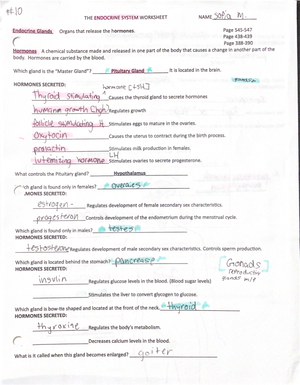 #10
THE ENDOCRINE SYSTEM WORKSHEET NAME Sofia M.
Endocrine Glands Organs that release the hormones. Page 545-547
Page 438-439
Page 388-390
Hormones A chemical substance made and released in one part of the body that causes a change in another part of the body. Hormones are carried by the blood.
Which gland is the "Master Gland"? Pituitary Gland It is located in the brain.
HORMONES SECRETED: hormone [TSH]
Thyroid stimulating Causes the thyroid gland to secrete hormones
human growth Regulates growth
follicle stimulating H. Stimulates eggs to mature in the ovaries.
oxytocin Causes the uterus to contract during the birth process.
prolactin Stimulates milk production in females.
luteinizing hormone LH Stimulates ovaries to secrete progesterone.
What controls the Pituitary gland? Hypothalamus
Which gland is found only in females? ovaries
HORMONES SECRETED:
estrogen Regulates development of female secondary sex characteristics.
progesteron Controls development of the endometrium during the menstrual cycle.
Which gland is found only in males? testes
HORMONES SECRETED:
testosterone Regulates development of male secondary sex characteristics. Controls sperm production.
Which gland is located behind the stomach? pancreas
HORMONES SECRETED: [Gonads]
reproductive
glands male
insulin Regulates glucose levels in the blood. (Blood sugar levels)
Stimulates the liver to convert glycogen to glucose.
Which gland is bow the shaped and located at the front of the neck. thyroid
HORMONES SECRETED:
thyroxine Regulates the body's metabolism.
Decreases calcium levels in the blood.
What is it called when this gland becomes enlarged? goiter